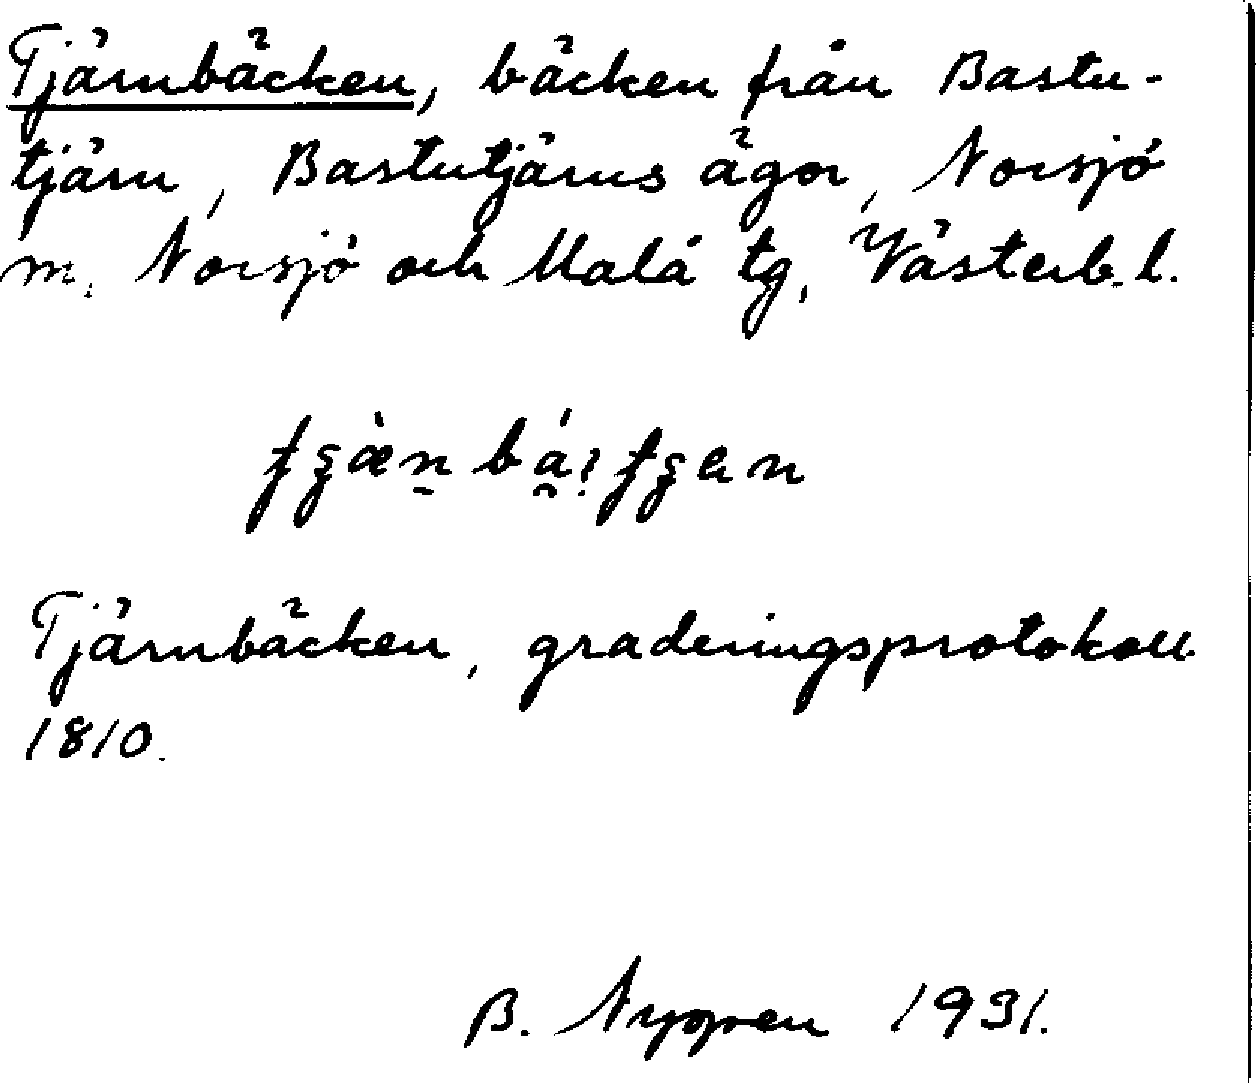 Tjärnbäcken, bäcken från Bastu-
tjärn, Bastutjärns ägor, Norsjö
m. Norsjö och Malå tg, Västerb. l.
Tjärnbäcken, graderingsprotokoll
1810.
B. Nygren 1931.